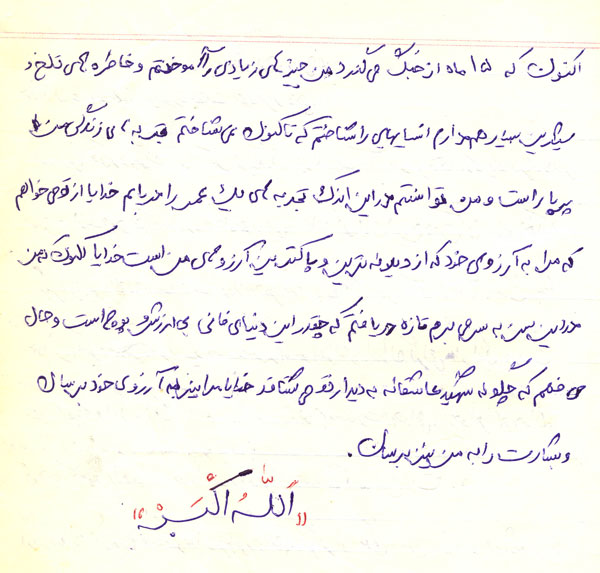 اکنون که ۱۵ ماه از جنگ می‌گذرد من چیزهای زیادی را آموختم و خاطره های تلخ و
شیرین بسیار دارم انسانهایی را شناختم که تاکنون نمی شناختم تجربه های زندگی من
پربار است و من توانستم در این اندک تجربه های یک عمر را دریابم خدایا از تو می خواهم
که مرا به آرزوی خود که از دیرینه ترین و پاکترین آرزوهای من است خدایا اکنون که من
در این سن به سر می برم تازه دریافتم که چقدر این دنیای فانی بی ارزش و پوچ است و حال
می فهمم که چگونه شهید عاشقانه به دیدار تو می شتابد خدایا مرا نیز به آرزوی خود برسان
و بشارت را به من نیز برسان.
«اَللّهُ اَکْبَرْ»